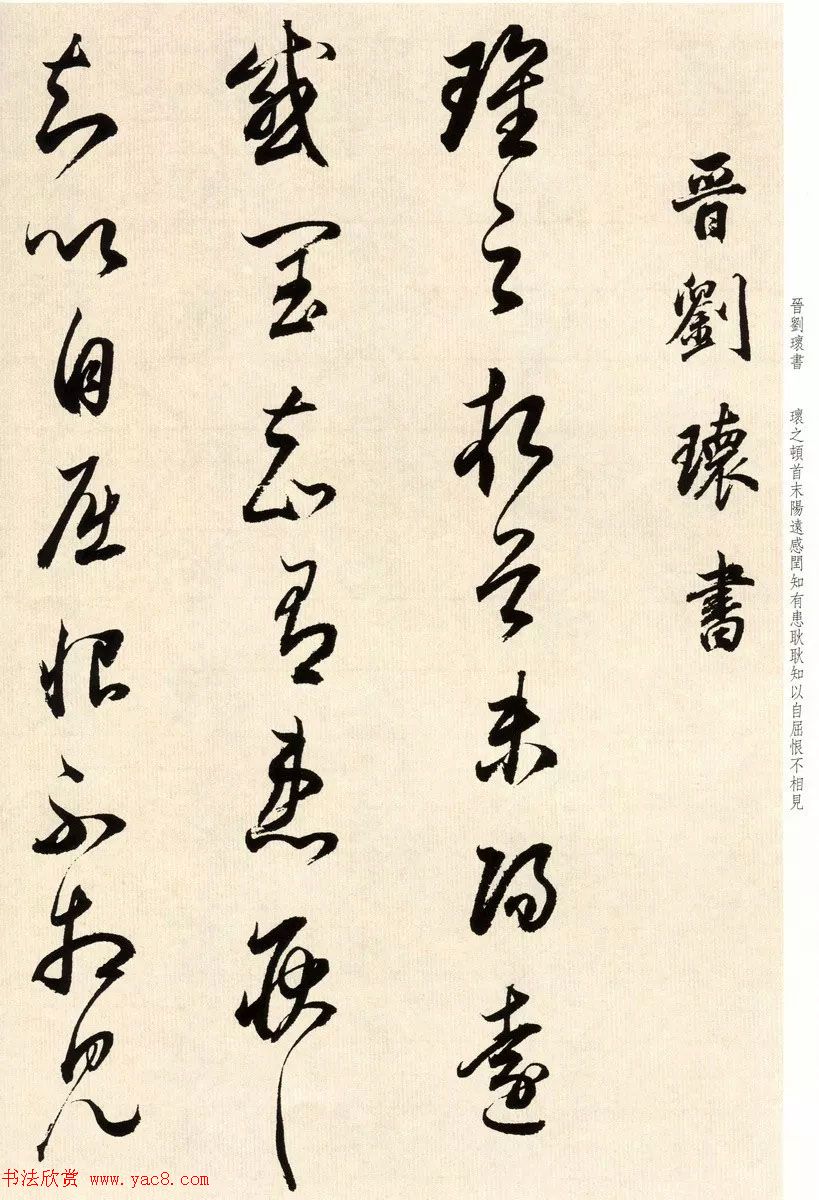 晋劉瓌書
瓌之頓首末陽遠
感閏知有患耿〻
知以自屈恨不相見
晉劉瓌書　瓌之頓首末陽遠感閏知有患耿耿知以自屈恨不相見
书法欣赏 www.yac8.com